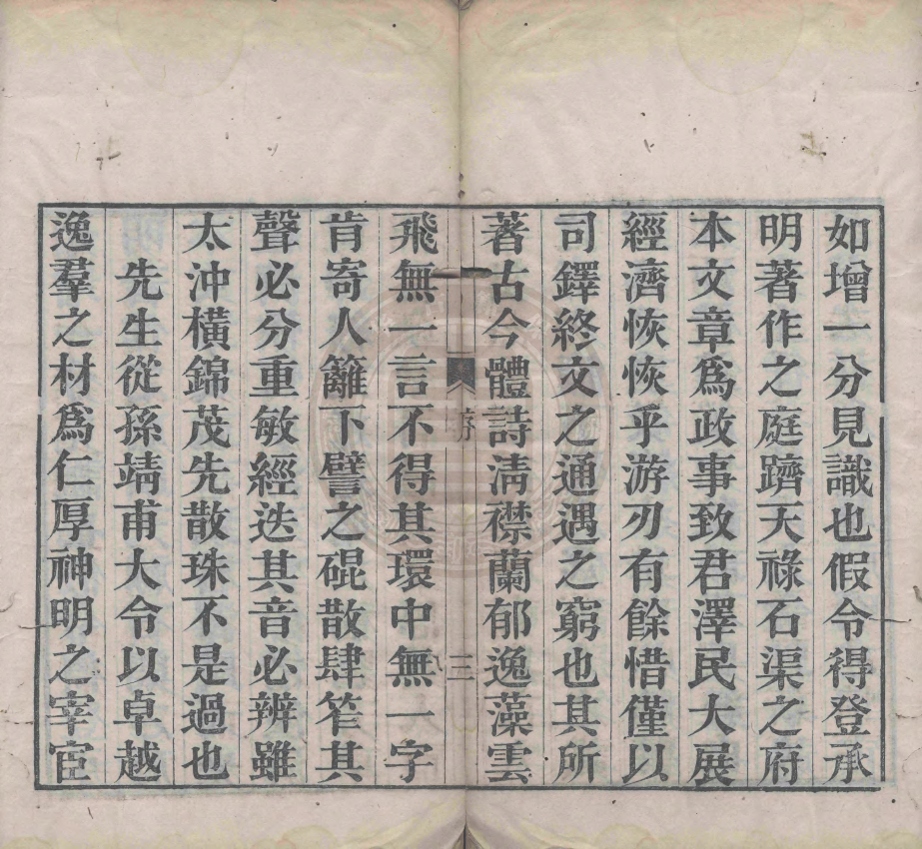 如增一分見識也假令得登承
明著作之庭躋天祿石渠之府
本文章爲政事致君澤民大展
經濟恢恢乎游刃有餘惜僅以
司鐸終文之通遇之窮也其所
著古今體詩淸襟蘭郁逸藻雲
序
三
飛無一言不得其環中無一字
肯寄人籬下譬之硍散肆笮其
聲必分重敏經迭其音必辨雖
太沖橫錦茂先散珠不是過也
先生從孫靖甫大令以卓越
逸羣之材爲仁厚神明之宰宦